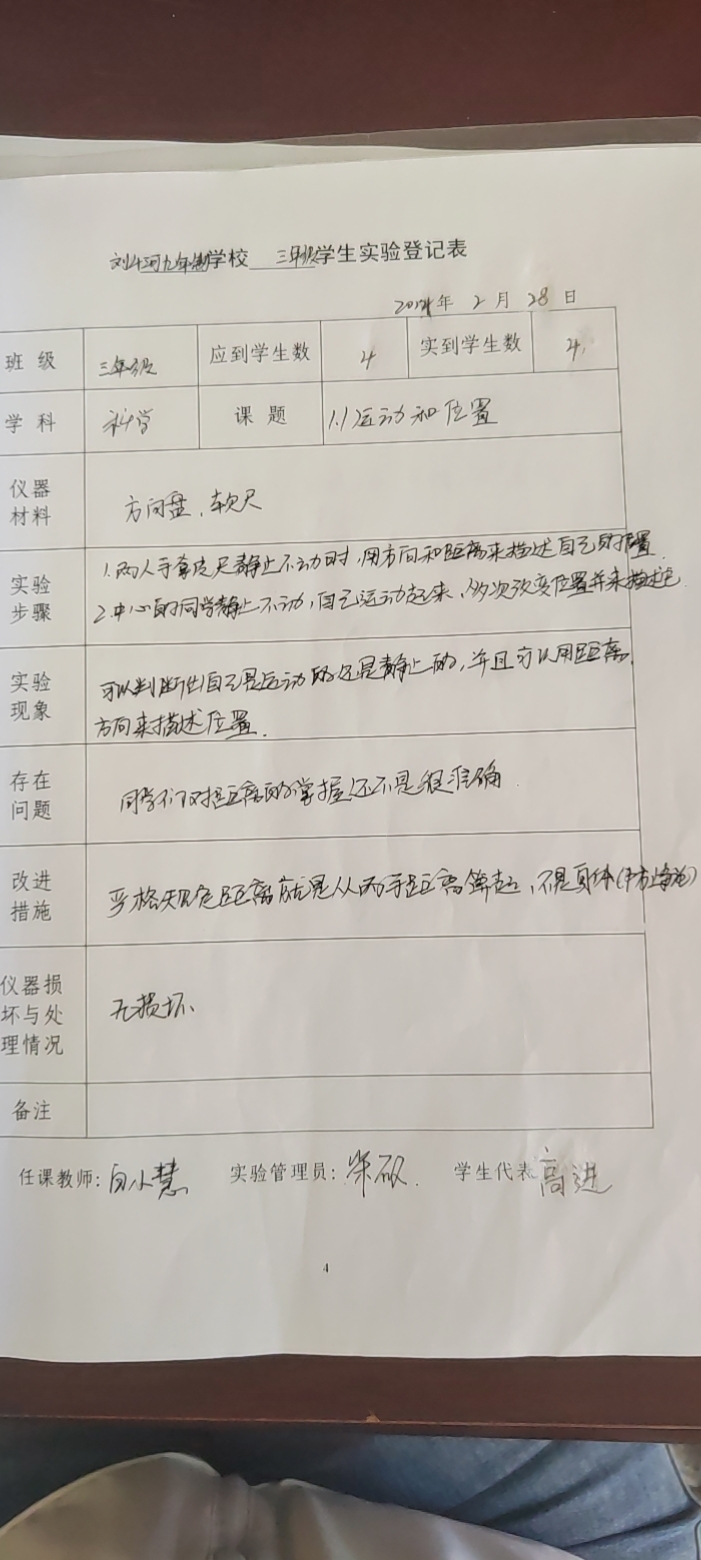 刘斗河九年制学校 三年级学生实验登记表
年 2 月 28 日
班 级 三年级 应到学生数 4 实到学生数 4
学 科 科学 课 题 1.1运动和位置
仪器
材料
方向盘、软尺
实验
步骤
1.两人手拿皮尺静止不动时,用方向和距离来描述自己的位置
2.中心的同学静止不动,自己运动起来,多次改变位置并来描述它
实验
现象
可以判断出自己是运动的还是静止的,并且可以用距离、
方向来描述位置.
存在
问题
同学们对距离的掌握还不是很准确.
改进
措施
严格规定距离就是从两手距离算起,不是身体
仪器损
坏与处
理情况
无损坏.
备注
任课教师:白小慧 实验管理员: 学生代表 高进
4